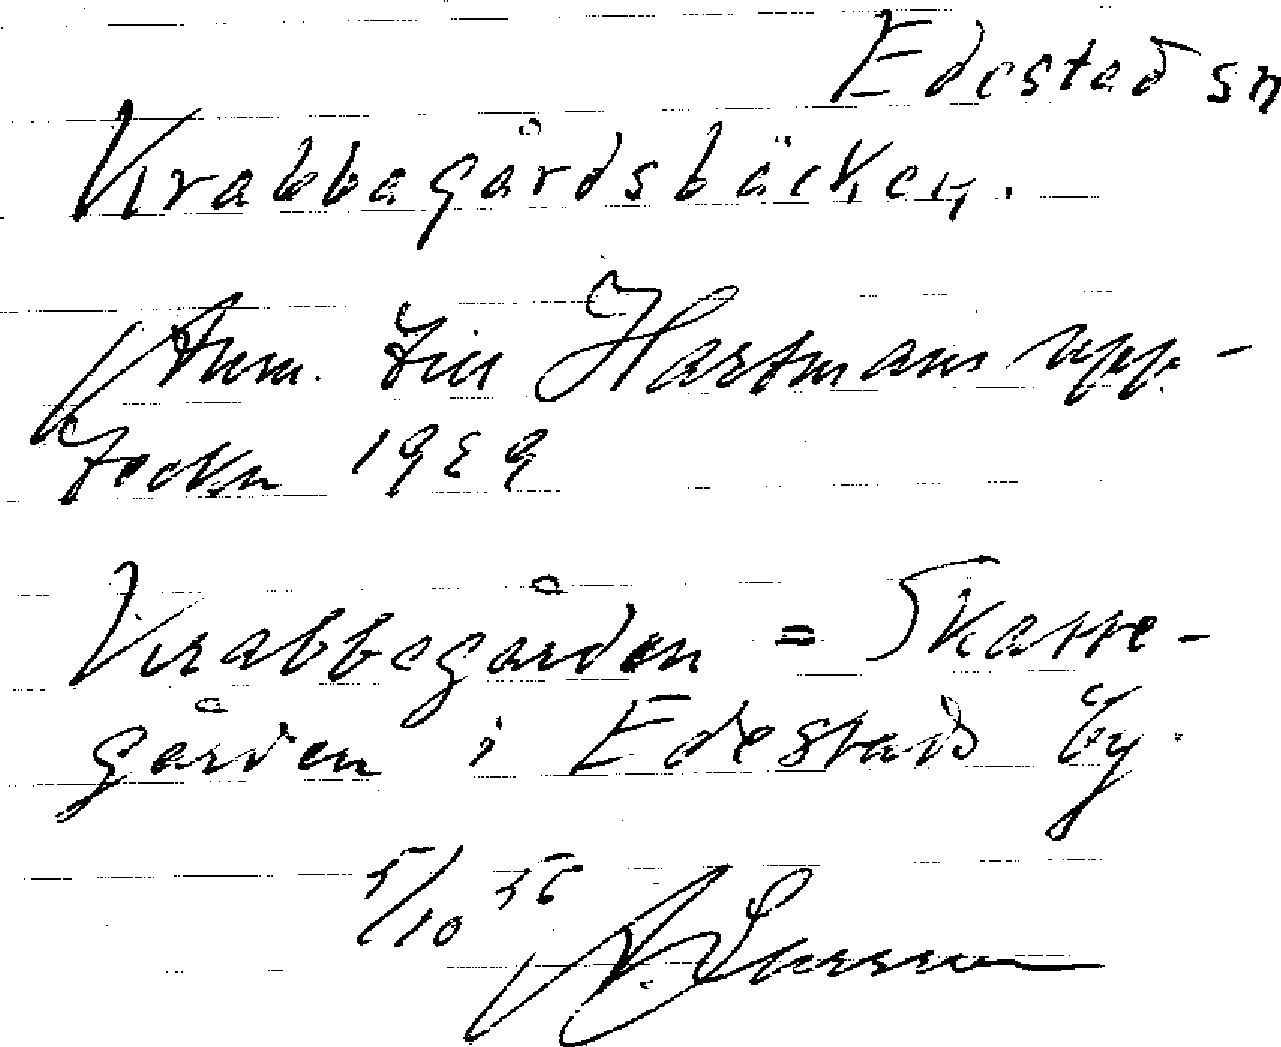 Edestad sn
Krabbagårdsbäcken.
Anm. till Hartmans upp-
teckn 1929
Krabbegården = Skatte-
gården i Edestads by.
5/10 56 A. Larsson